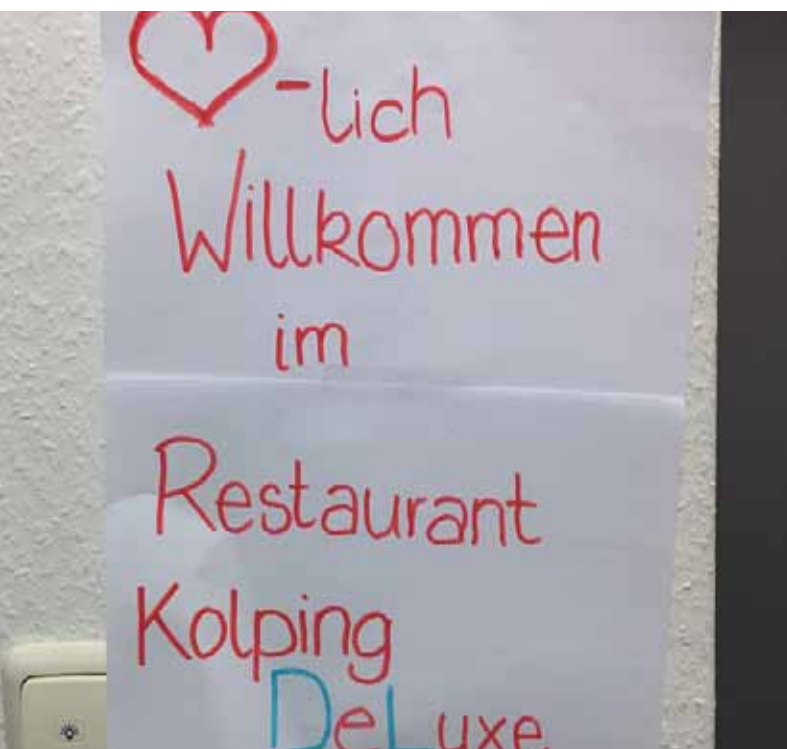 ♥-lich
Willkommen
im
Restaurant
Kolping
DeLuxe